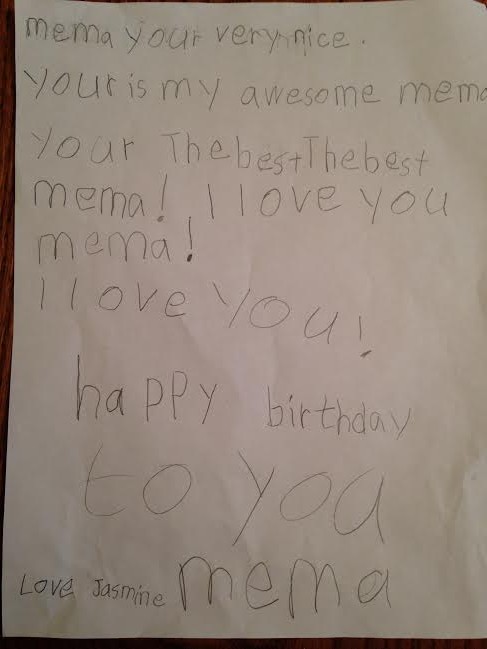 mema your very nice.
your is my awesome mema
your The best The best
mema! I love you
mema!
I love you!
happy birthday
to you
Love Jasmine mema